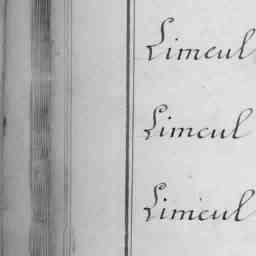 Limcul
Limcul
Limcul